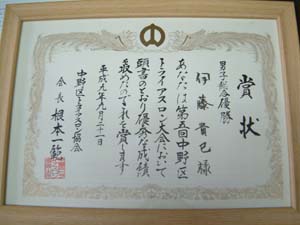 賞状
男子総合優勝
伊藤貴巳様
あなたは第五回中野区
トライアスロン大会において
頭書のとおり優秀な成績
を収めたのでこれを賞します
平成九年九月二十一日
中野区トライアスロン協会
会長 根本一範